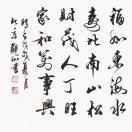 福如東海水
壽比南山松
財茂人丁旺
家和萬事興